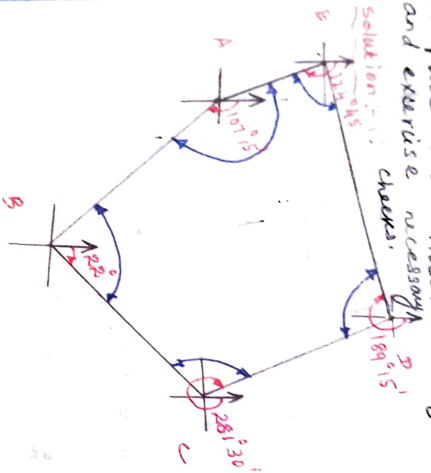 and exercise necessary
checks.
solution:-
E
124°45
A
107°15'
B
22°
C
281°30'
D
189°15'